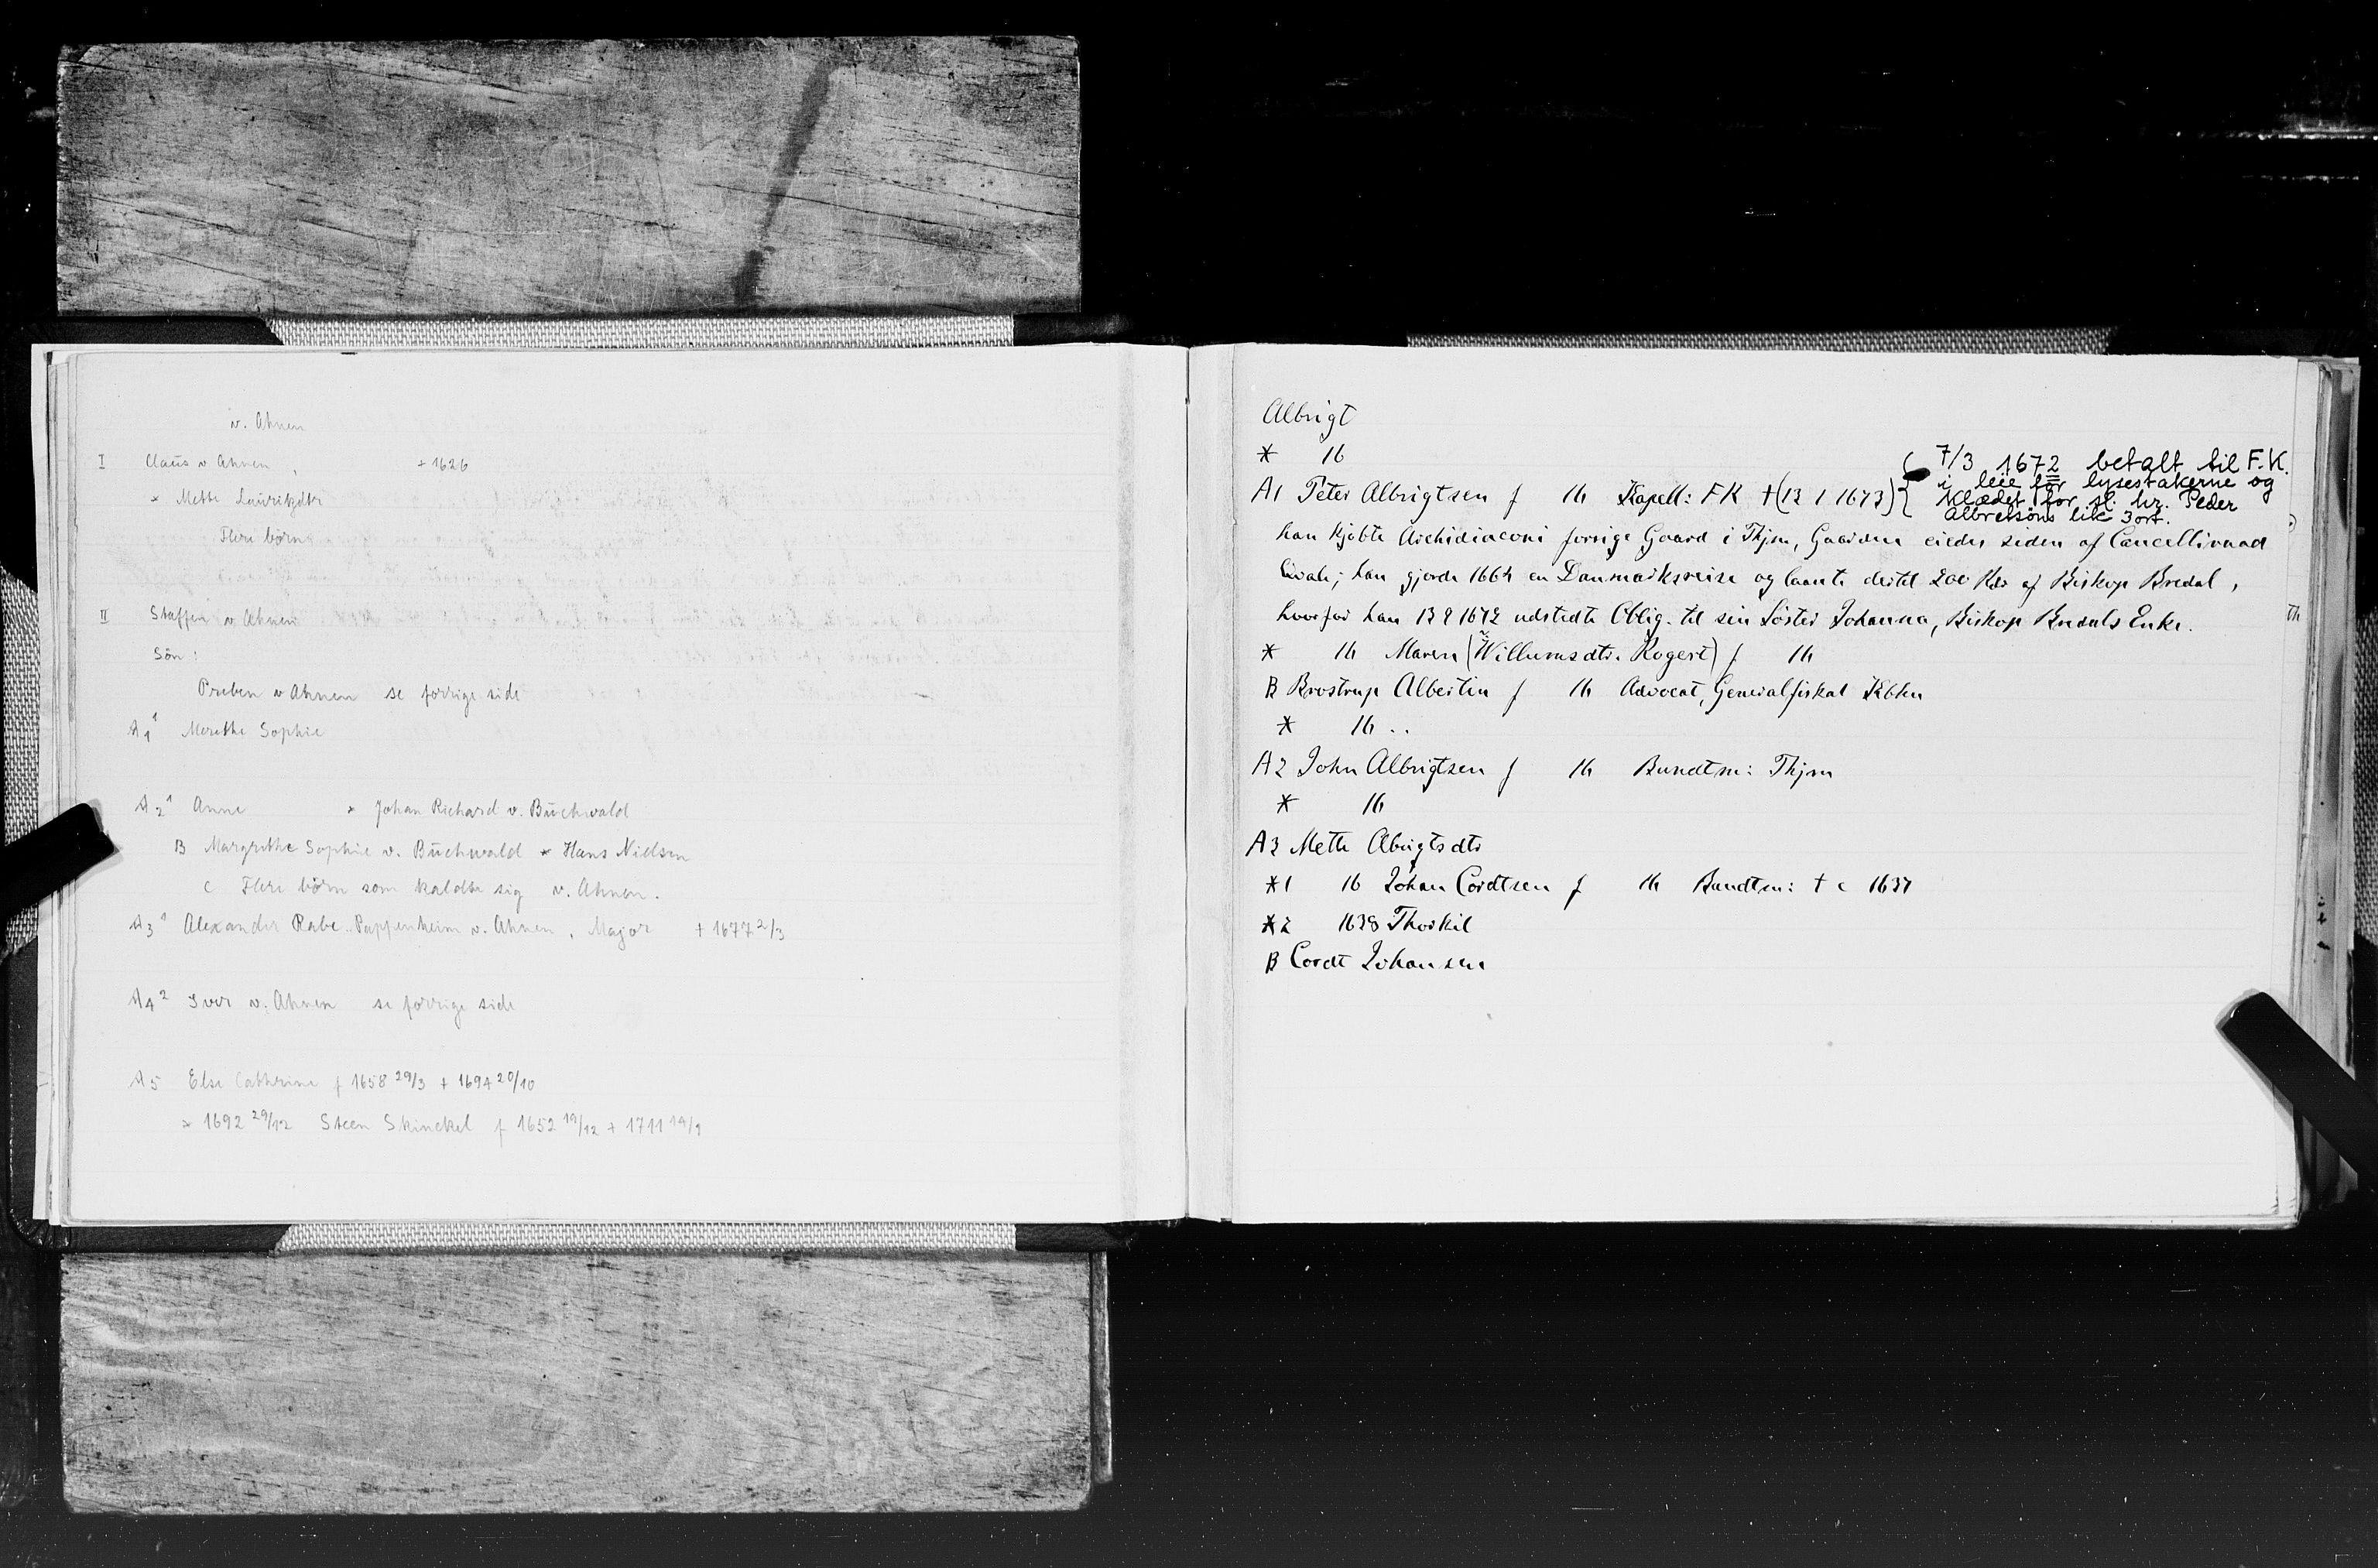 v. Ahnen
I Claus v Ahnen, + 1626
* Mette Lauritzdtr
Flere börn
II Staffen v Ahnen
Sön:
Preben v Ahnen se forrige side
A1¹ Merethe Sophie
A2¹ Anne * Johan Richard v. Buchwald
B Margrethe Sophie v. Buchwald * Hans Nielsen
C Flere börn som kaldte sig v. Ahnen.
A3¹ Alexander Rabe Pappenheim v. Ahnen, Major + 1677 2/3
A4² Iver v. Ahnen se forrige side
A5 Else Cathrine f 1658 29/3 + 1694 20/10
* 1692 29/12 Steen Skinckel f 1652 19/12 + 1711 14/9
Albrigt
* 16
7/3 1672 betalt til F.K.
i leie for lysestakerne og
klædet for sl. hr. Peder
Albretsöns lik 3 ort.
A1 Peter Albrigtsen f 16 Kapell: FK †(13 1 1673)
han kjöbte Archidiaconi forrige Gaard i Thjm, Gaarden eiedes siden af Cancelliraad
; han gjorde 1664 en Danmarksreise og laante dertil 200 Rdr af Biskop Bredal,
hvorfor han 13 2 1672 udstedte Oblig. til sin Söster Johanna, Biskop Bredals Enke.
* 16 Maren (Willumsdtr. Rogert) f 16
B Brostrup Albertin f 16 Advocat, Generalfiskal Kbhn
* 16 ..
A2 John Albrigtsen f 16 Bundtm: Thjm
* 16
A3 Mette Albrigtsdtr
*1 16 Johan Cordtsen f 16 Bundtm: † c 1637
*2 1638 Thorkil
B Cordt Johansen
Th